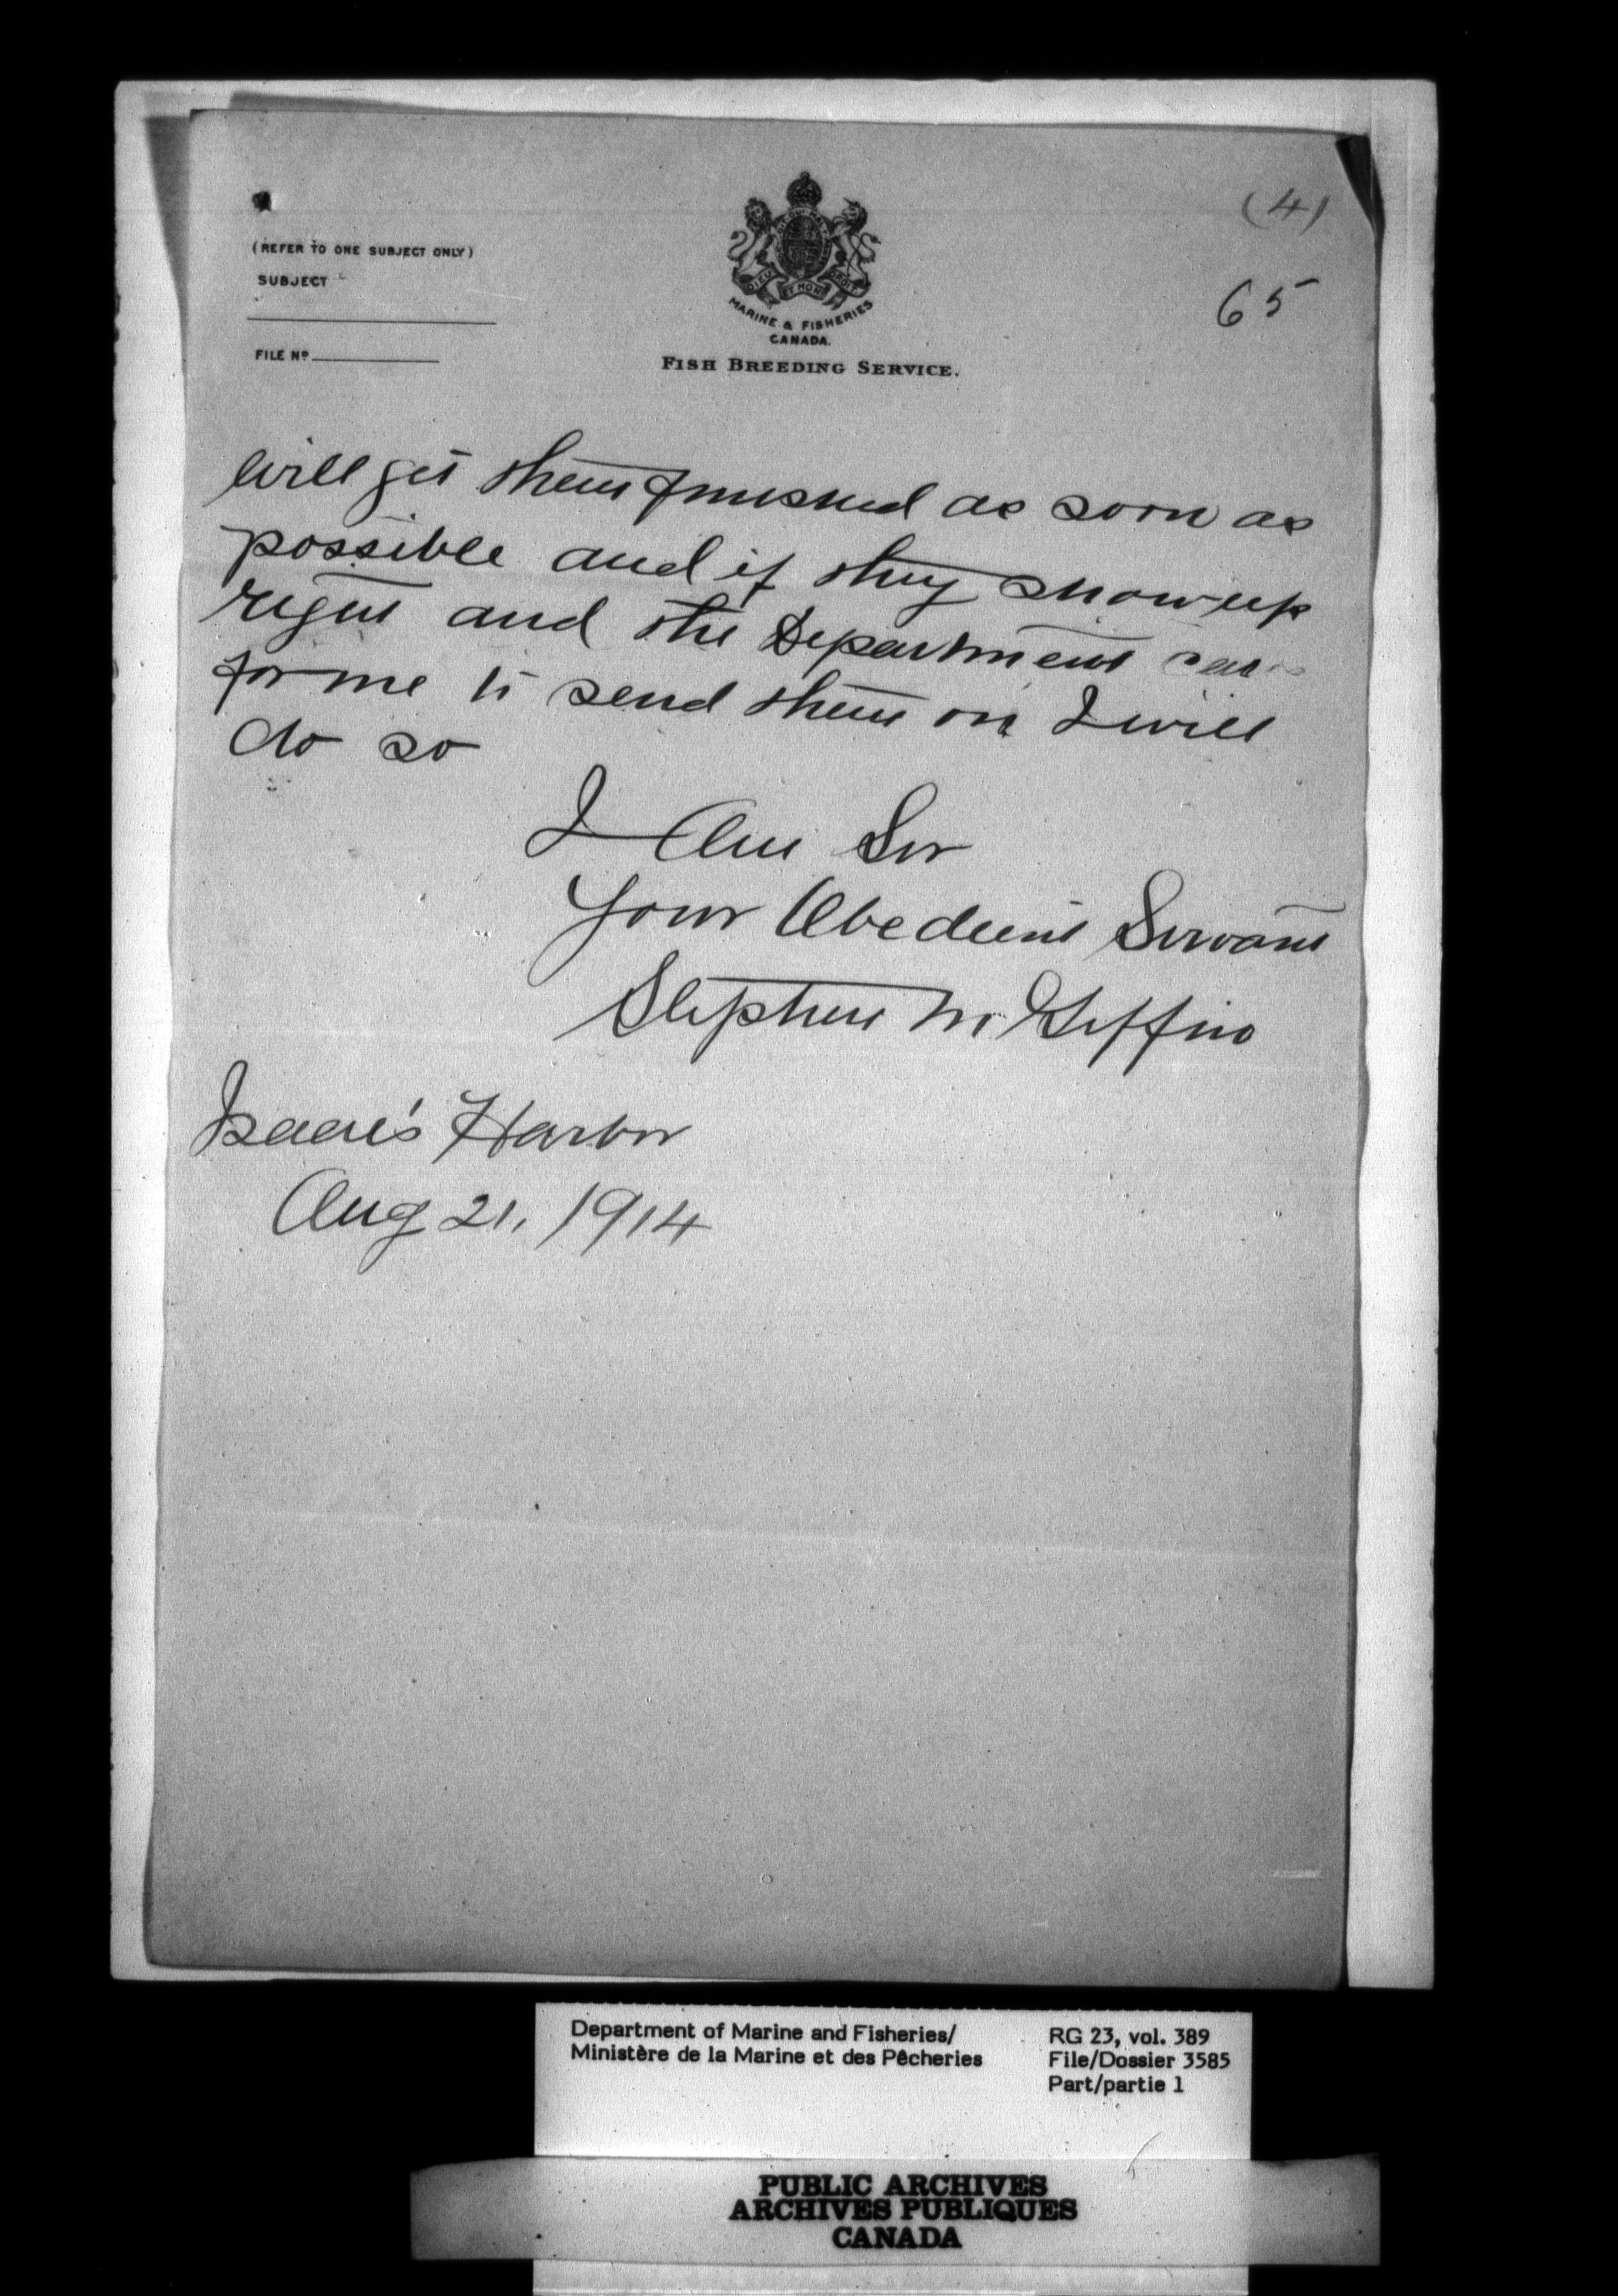 (4)
(REFER TO ONE SUBJECT ONLY)
SUBJECT
65
FILE No
DIEU ET MON DROIT
MARINE & FISHERIES
CANADA.
FISH BREEDING SERVICE.
will get them finished as soon as
possible and if they show up
right and the Department
for me to send them on I will
do so
I Am Sir
Your Obedient Servant
Stephen M Giffin
Isaac's Harbor
Aug 21, 1914
Department of Marine and Fisheries/
Ministère de la Marine et des Pêcheries
RG 23, vol. 389
File/Dossier 3585
Part/partie 1
PUBLIC ARCHIVES
ARCHIVES PUBLIQUES
CANADA